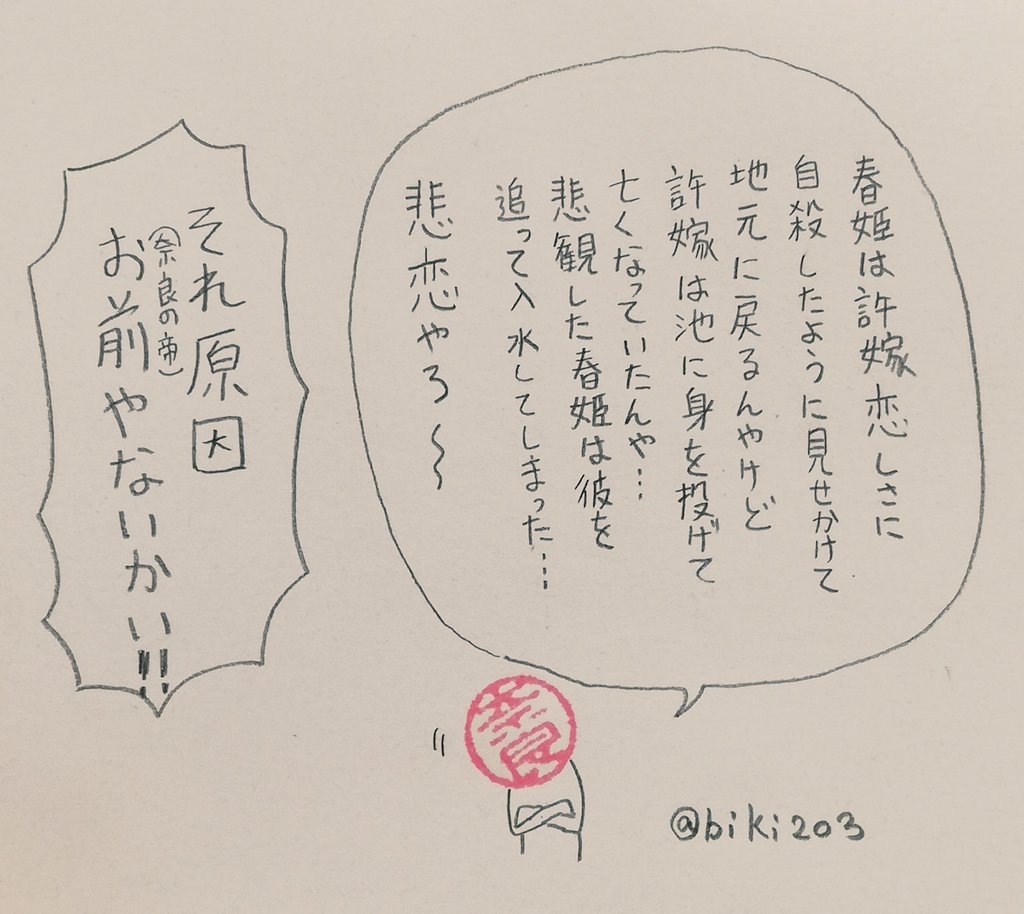 春姫は許嫁恋しさに
自殺したように見せかけて
地元に戻るんやけど
許嫁は池に身を投げて
亡くなっていたんや…
悲観した春姫は彼を
追って入水してしまった…
悲恋やろ〜〜
それ原因
(奈良の帝)
お前やないかい!!
奈良
@biki203